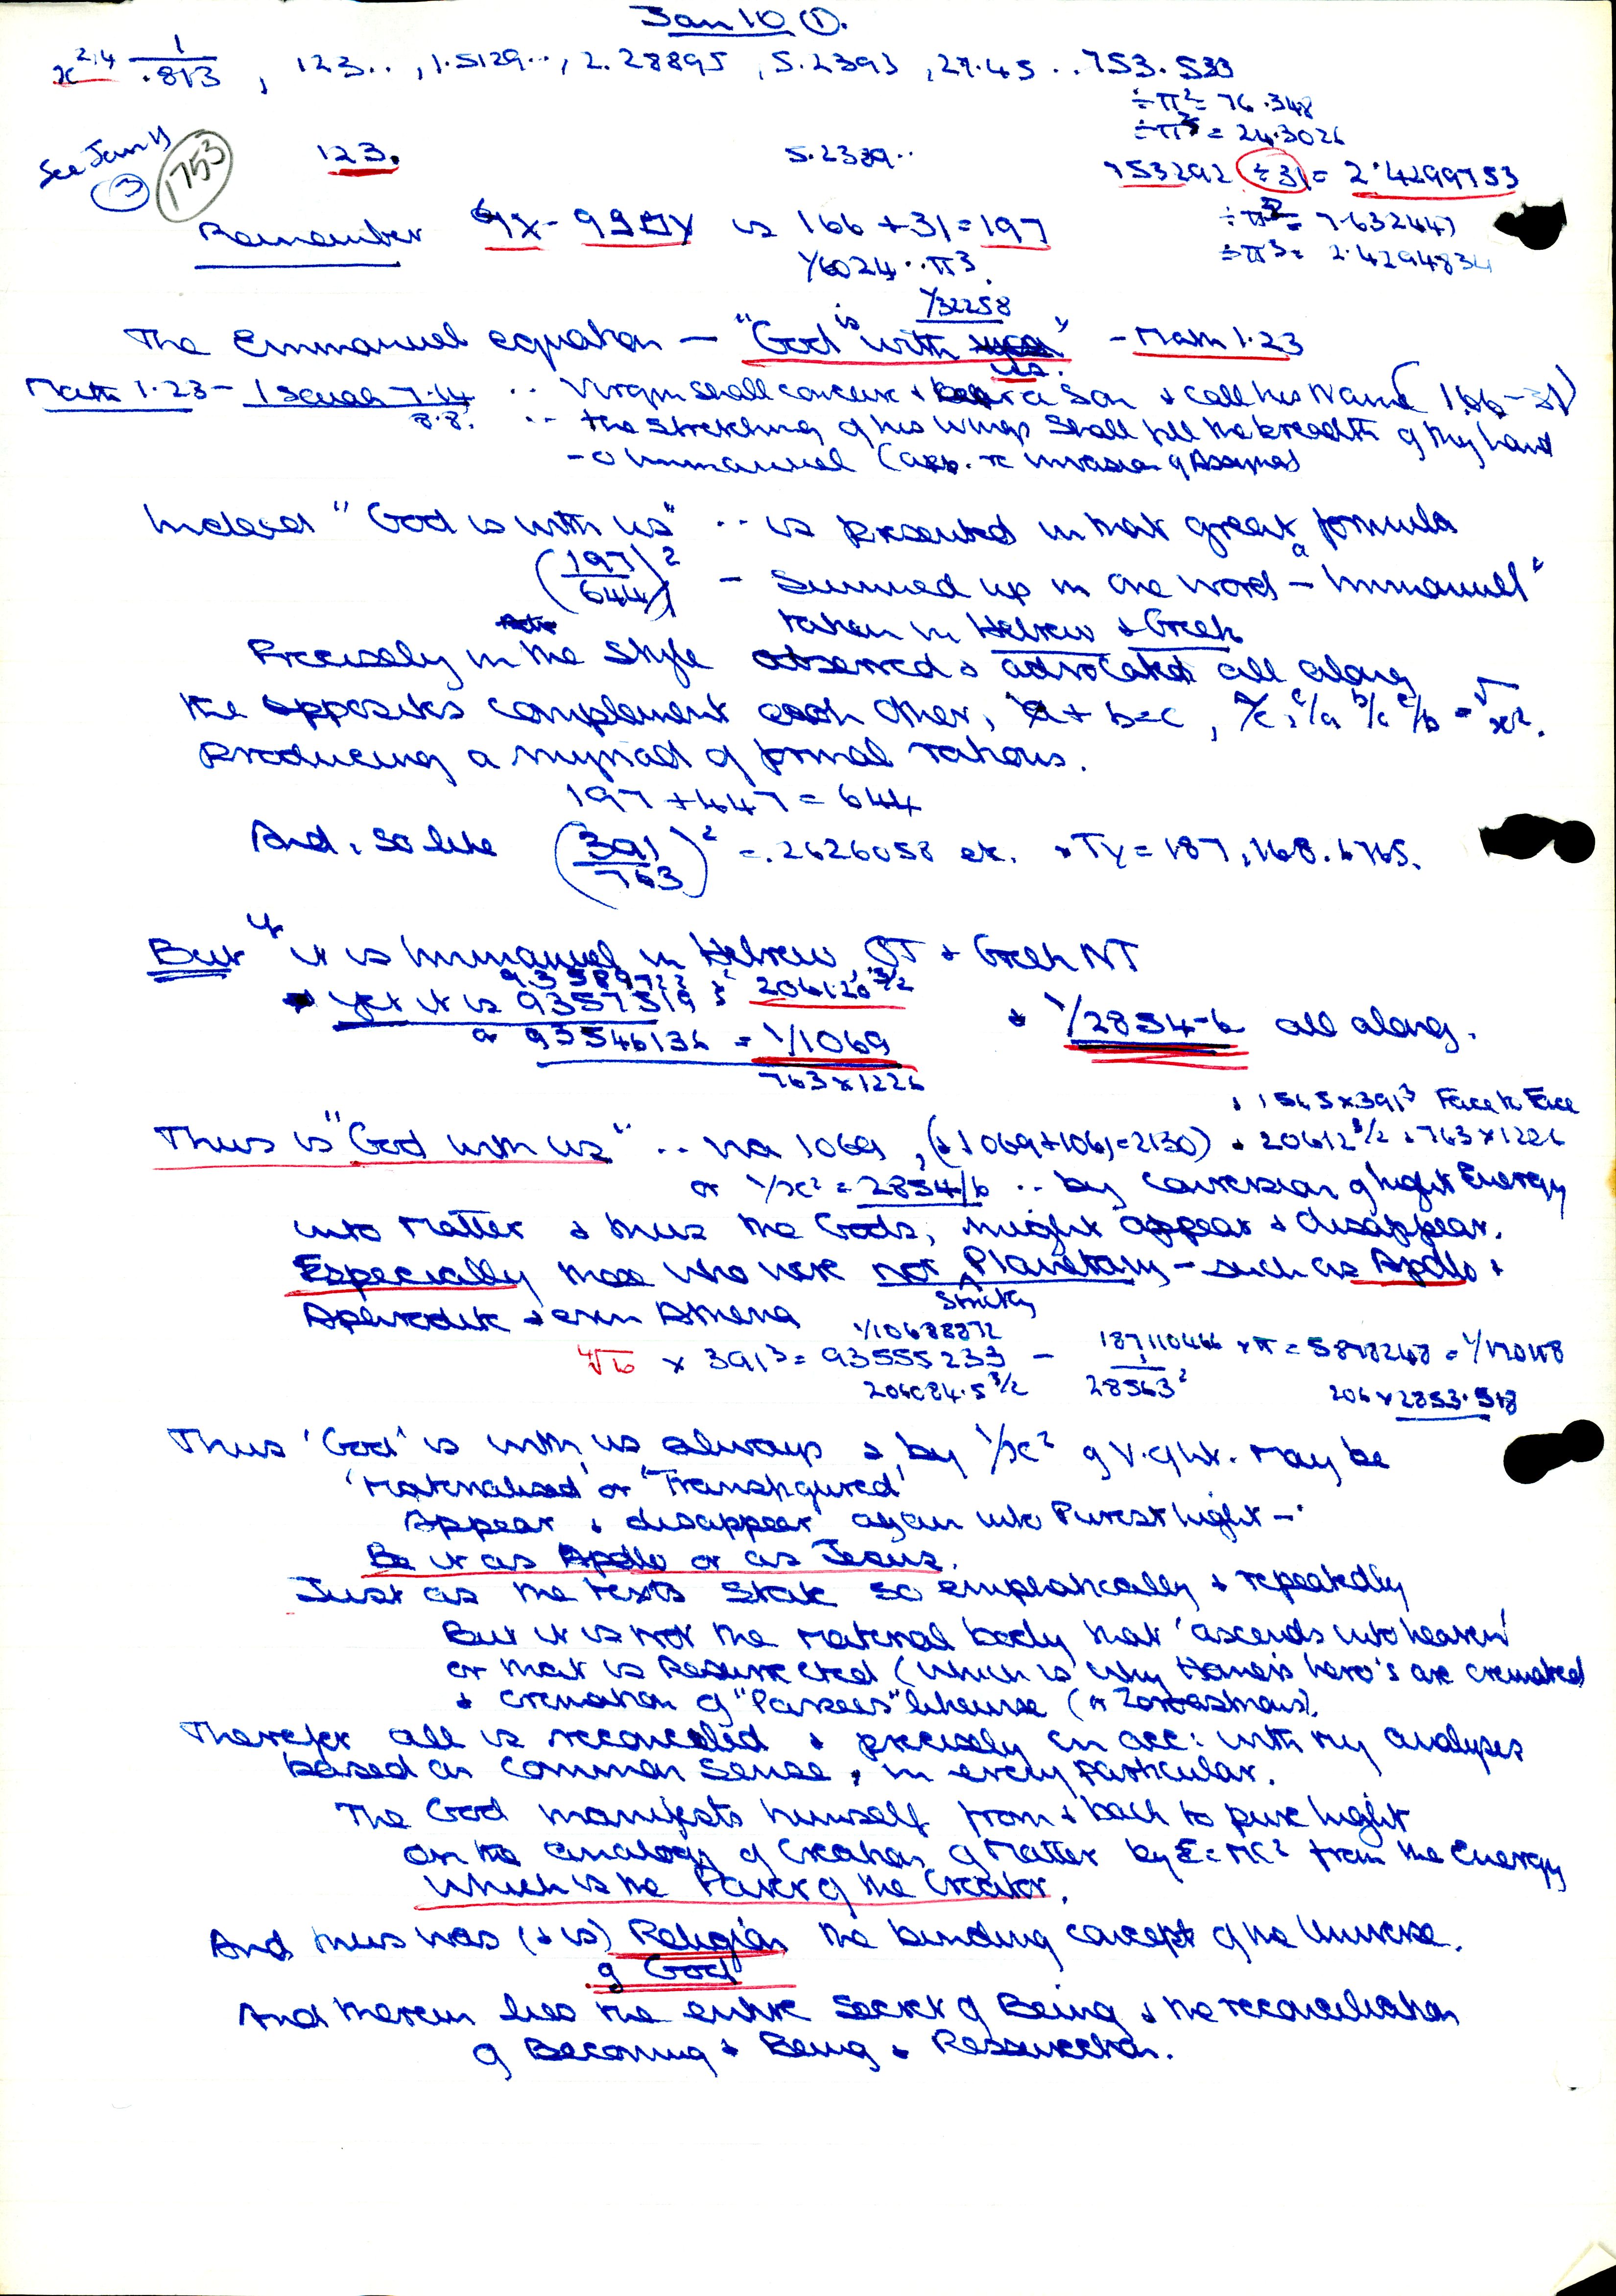 Jan 10 ①.
x^2.4 1/.813 , 123.. , 1.5129.., 2.28895 , 5.2393 , 27.45 .. 753.533
÷π² = 76.348
÷π³ = 24.3026
See Jan 11 ③ 1753
123. 5.2339.. 753292 ÷31 = 2.4299753
Remember is 166 + 31 = 197 ÷π² = 7.632447
1/6024..π³. ÷π³ = 2.4294834
1/32258
The Emmanuel equation — "God is with us" - Math 1.23
Math 1.23 - Isaiah 7.14 .. Virgin shall conceive & bear a son & call his Name (166-31)
8.8. .. the stretching of his wings shall fill the breadth of thy land
- O Immanuel (
Indeed "God is with us" .. is presented in that great formula
(197/644)² - Summed up in one word - "Immanuel"
taken in Hebrew & Greek
Precisely in the style observed & advocated all along
the opposites complement each other, a + b = c , a/c, c/a b/c c/b = √x².
Producing a myriad of primal rations.
197 + 447 = 644
And, so like (391/763)² = .2626058 ex. × Ty = 187,168.6765.
But if it is Immanuel in Hebrew OT & Greek NT
93589722
yet it is 9357519 ; 206120^3/2 & 1/2854-6 all along.
or 93546136 = 1/1069
763×1226
& 1565×391³ Face to Face
Thus is "God with us" .. via 1069, (& 1069+1061=2130) & 20612^3/2 & 763×1226
or 1/x² = 2854/6 .. by conversion of light Energy
into matter & thus the Gods, might appear & disappear.
Especially those who were not strictly Planetary - such as Apollo &
Aphrodite & even Athena
1/10688872
∜6 × 391³ = 93555233 - 187110466 × π = 5878248 = 1/170118
206084.5^3/2 1/28563² 206 × 2853.518
Thus 'God' is with us always & by 1/x² of V. of Lt. may be
'Materialised' or 'Transfigured'
Appear & disappear again into Purest light -
Be it as Apollo or as Jesus.
Just as the texts state so emphatically & repeatedly
But it is not the material body that 'ascends into heaven'
or that is Resurrected (which is why Homer's hero's are cremated
& cremation of "Parsees" likewise (or Zoroastrians).
Therefor all is reconciled & precisely in acc: with my analyses
based on common sense, in every particular.
The God manifests himself from & back to pure light
on the analogy of Creation of Matter by E=MC² from the Energy
which is the Power of the Creator.
And thus was (& is) Religion the binding concept of the Universe.
of God
And therein lies the entire secret of Being & the reconciliation
of Becoming & Being & Ressurection.